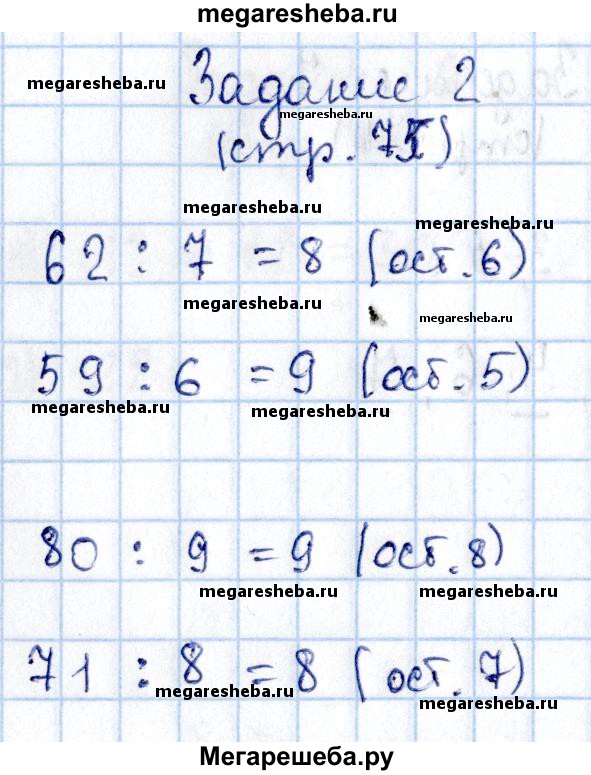 megaresheba.ru
megaresheba.ru
Задание 2
megaresheba.ru
(стр. 75)
megaresheba.ru
megaresheba.ru
62 : 7 = 8 (ост. 6)
megaresheba.ru
megaresheba.ru
59 : 6 = 9 (ост. 5)
megaresheba.ru
megaresheba.ru
80 : 9 = 9 (ост. 8)
megaresheba.ru
megaresheba.ru
71 : 8 = 8 (ост. 7)
megaresheba.ru
megaresheba.ru
Мегарешеба.ру